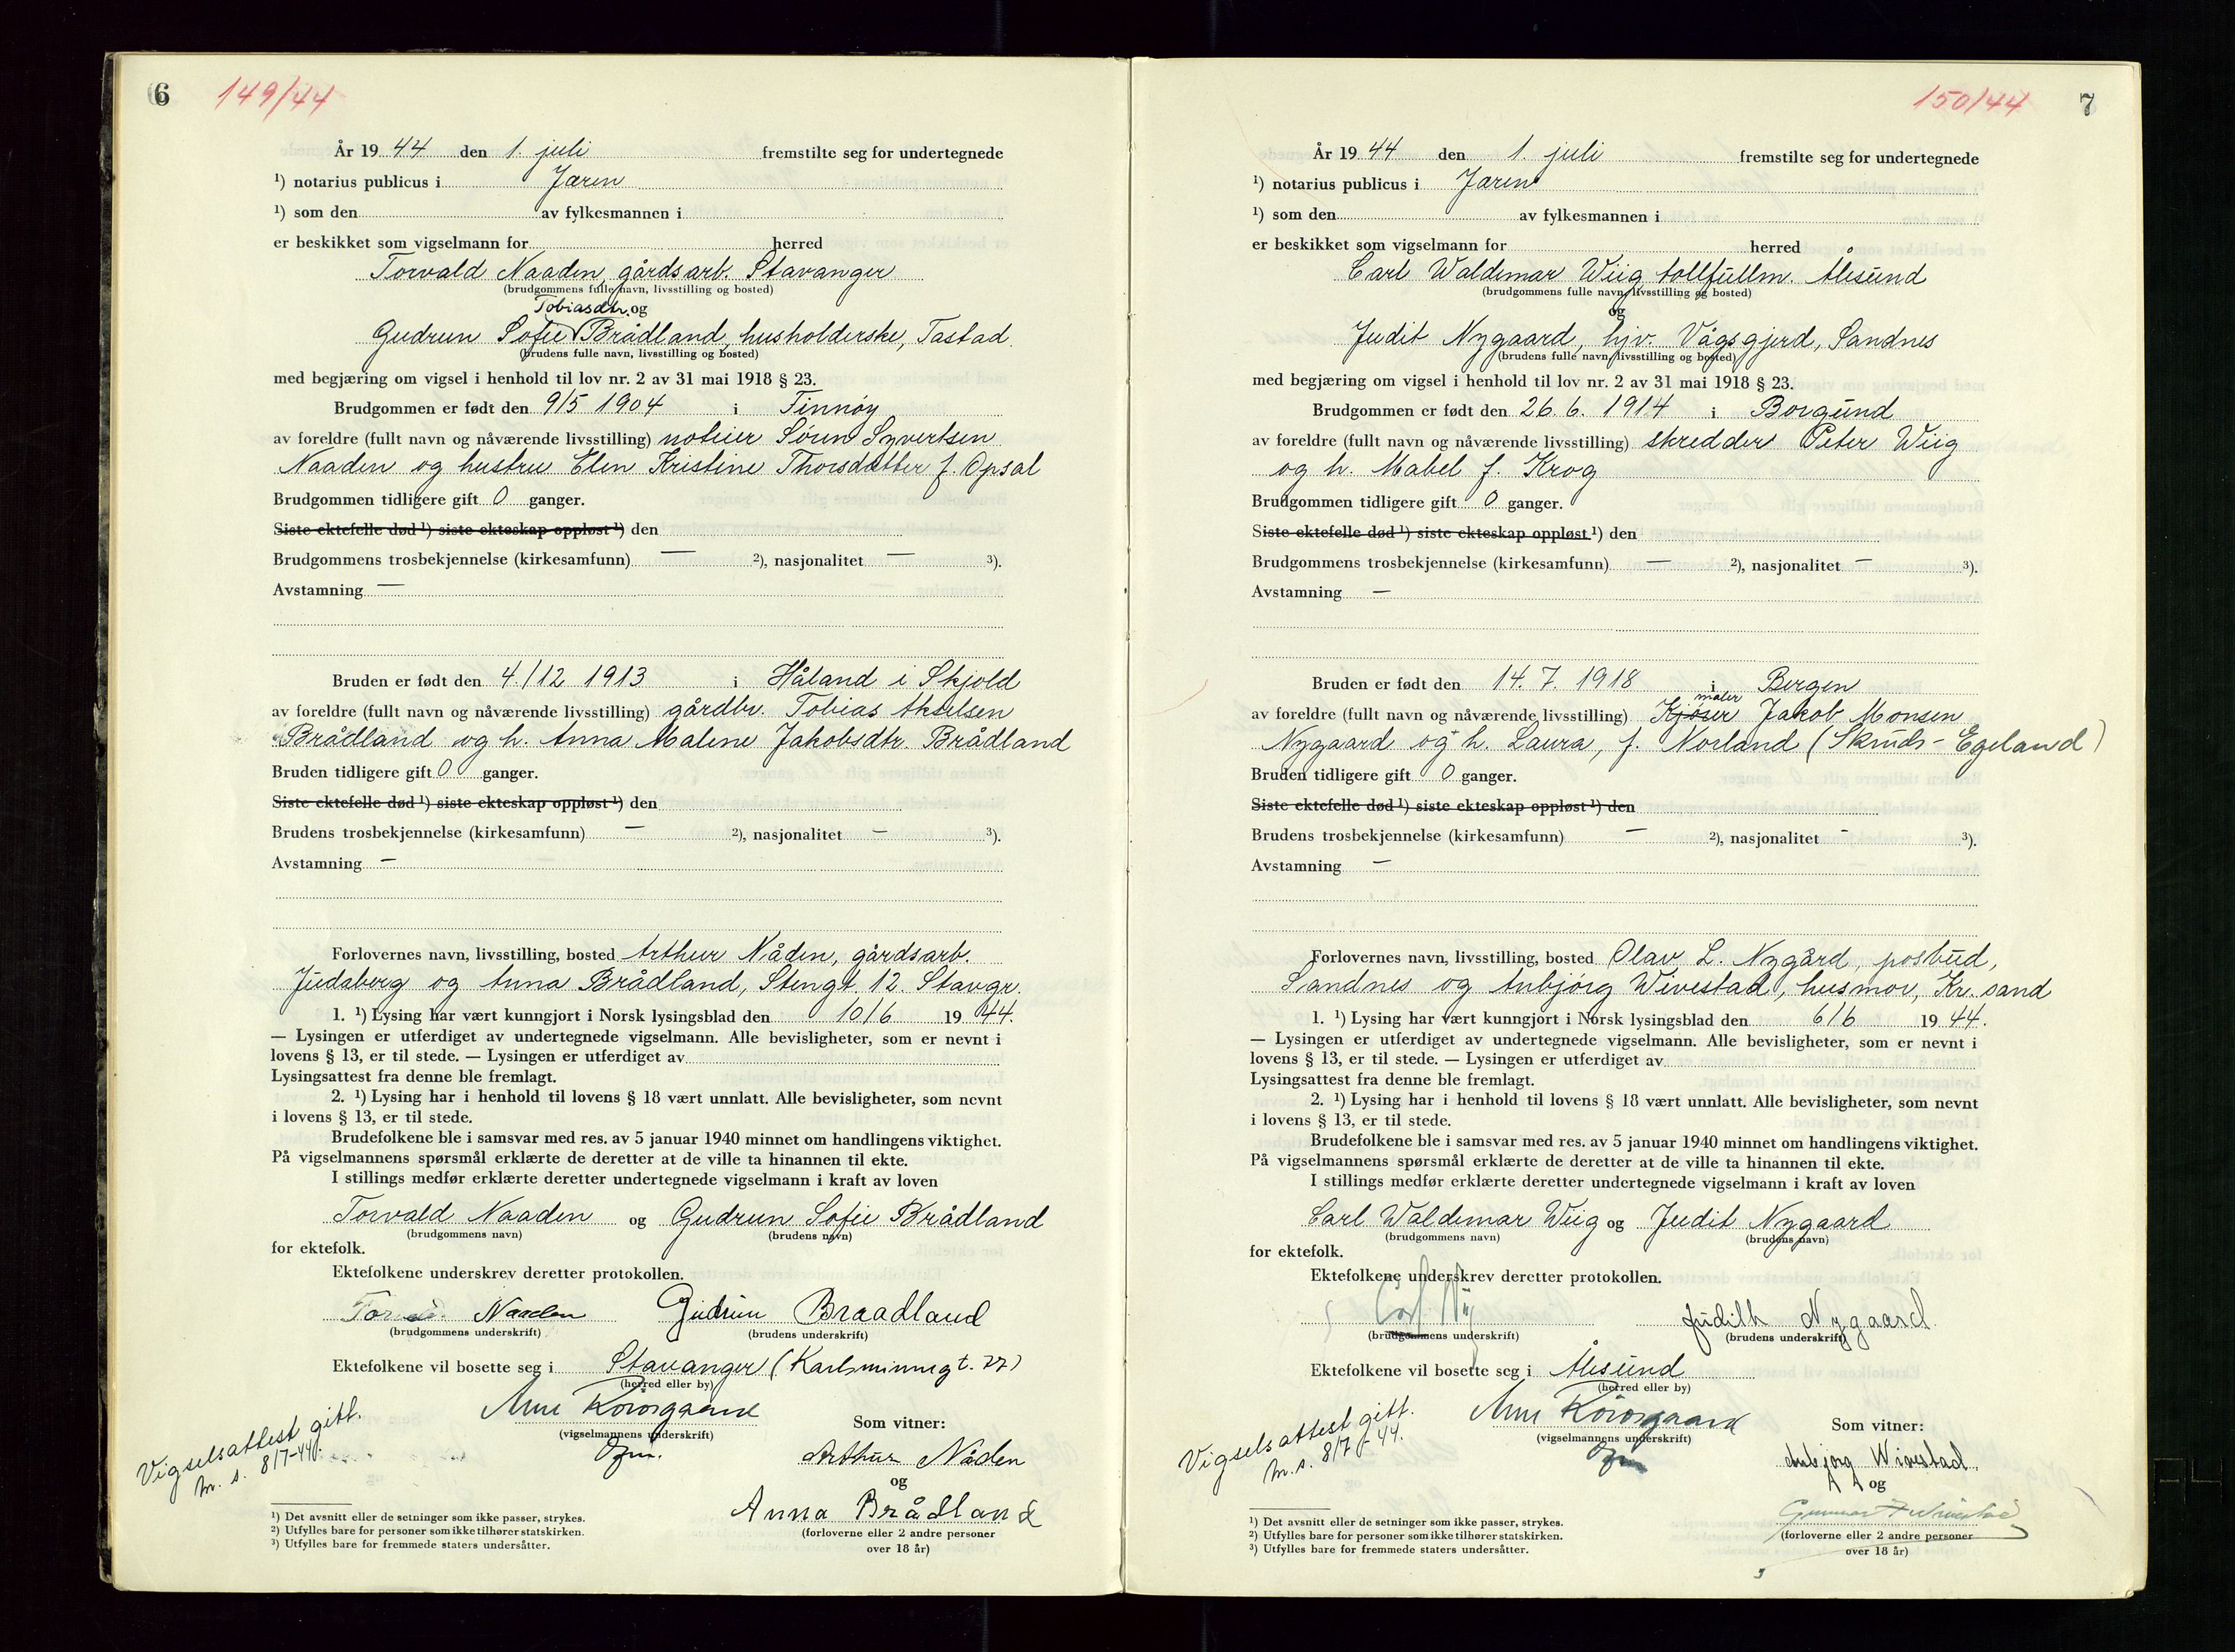 6
149/44
År 19 44 den 1. juli fremstilte seg for undertegnede
¹) notarius publicus i Jæren
¹) som den av fylkesmannen i
er beskikket som vigselmann for herred
Torvald Naaden, gårdsarb. Stavanger
(brudgommens fulle navn, livsstilling og bosted)
Tobiasdtr. og
Gudrun Sofie Brådland, husholderske, Tastad
(brudens fulle navn, livsstilling og bosted)
med begjæring om vigsel i henhold til lov nr. 2 av 31 mai 1918 § 23.
Brudgommen er født den 9/5 1904 i Finnøy
av foreldre (fullt navn og nåværende livsstilling) notbier Søren Syvertsen
Naaden og hustru Elen Kristine Thorsdatter f. Opsal
Brudgommen tidligere gift 0 ganger.
Siste ektefelle død ¹) siste ekteskap oppløst ¹) den
Brudgommens trosbekjennelse (kirkesamfunn) — ²), nasjonalitet — ³).
Avstamning —
Bruden er født den 4/12 1913 i Håland i Skjold
av foreldre (fullt navn og nåværende livsstilling) gårdbr. Tobias Akselsen
Brådland og h. Anna Malene Jakobsdtr. Brådland
Bruden tidligere gift 0 ganger.
Siste ektefelle død ¹) siste ekteskap oppløst ¹) den
Brudens trosbekjennelse (kirkesamfunn) — ²), nasjonalitet — ³).
Avstamning —
Forlovernes navn, livsstilling, bosted Arthur Nåden, gårdsarb.
Judaberg og Anna Brådland, Stengt. 12. Stavgr.
1. ¹) Lysing har vært kunngjort i Norsk lysingsblad den 10/6 19 44.
— Lysingen er utferdiget av undertegnede vigselmann. Alle bevisligheter, som er nevnt i
lovens § 13, er til stede. — Lysingen er utferdiget av
Lysingsattest fra denne ble fremlagt.
2. ¹) Lysing har i henhold til lovens § 18 vært unnlatt. Alle bevisligheter, som nevnt
i lovens § 13, er til stede.
Brudefolkene ble i samsvar med res. av 5 januar 1940 minnet om handlingens viktighet.
På vigselmannens spørsmål erklærte de deretter at de ville ta hinannen til ekte.
I stillings medfør erklærte deretter undertegnede vigselmann i kraft av loven
Torvald Naaden og Gudrun Sofie Brådland
(brudgommens navn) (brudens navn)
for ektefolk.
Ektefolkene underskrev deretter protokollen.
Naaden Gudrun Braadland
(brudgommens underskrift) (brudens underskrift)
Ektefolkene vil bosette seg i Stavanger (Karlsminnegt. 77)
(herred eller by)
(vigselmannens underskrift)
Vigselsattest gitt.
m. s. 8/7-44.
Som vitner:
Arthur Nåden
og
Anna Brådland
(forloverne eller 2 andre personer
over 18 år)
¹) Det avsnitt eller de setninger som ikke passer, strykes.
²) Utfylles bare for personer som ikke tilhører statskirken.
³) Utfylles bare for fremmede staters undersåtter.
150/44 7
År 19 44 den 1. juli fremstilte seg for undertegnede
¹) notarius publicus i Jæren
¹) som den av fylkesmannen i
er beskikket som vigselmann for herred
Carl Waldemar Wiig tollfullm. Ålesund
(brudgommens fulle navn, livsstilling og bosted)
og
Judit Nygaard, hjv. Vågsgjerd, Sandnes
(brudens fulle navn, livsstilling og bosted)
med begjæring om vigsel i henhold til lov nr. 2 av 31 mai 1918 § 23.
Brudgommen er født den 26. 6. 1914 i Borgund
av foreldre (fullt navn og nåværende livsstilling) skredder Peter Wiig
og h. Mabel f. Krog
Brudgommen tidligere gift 0 ganger.
Siste ektefelle død ¹) siste ekteskap oppløst ¹) den
Brudgommens trosbekjennelse (kirkesamfunn) — ²), nasjonalitet — ³).
Avstamning —
Bruden er født den 14. 7. 1918 i Bergen
maler
av foreldre (fullt navn og nåværende livsstilling) Kjøser Jakob Monsen
Nygaard og h. Laura, f. Norland (Skruds-Egeland)
Bruden tidligere gift 0 ganger.
Siste ektefelle død ¹) siste ekteskap oppløst ¹) den
Brudens trosbekjennelse (kirkesamfunn) — ²), nasjonalitet - ³).
Avstamning —
Forlovernes navn, livsstilling, bosted Olav L. Nygård, postbud,
Sandnes og Anbjørg Wivestad, husmor, Kr. sand
1. ¹) Lysing har vært kunngjort i Norsk lysingsblad den 6/6 19 44.
— Lysingen er utferdiget av undertegnede vigselmann. Alle bevisligheter, som er nevnt i
lovens § 13, er til stede. — Lysingen er utferdiget av
Lysingsattest fra denne ble fremlagt.
2. ¹) Lysing har i henhold til lovens § 18 vært unnlatt. Alle bevisligheter, som nevnt
i lovens § 13, er til stede.
Brudefolkene ble i samsvar med res. av 5 januar 1940 minnet om handlingens viktighet.
På vigselmannens spørsmål erklærte de deretter at de ville ta hinannen til ekte.
I stillings medfør erklærte deretter undertegnede vigselmann i kraft av loven
Carl Waldemar Wiig og Judit Nygaard
(brudgommens navn) (brudens navn)
for ektefolk.
Ektefolkene underskrev deretter protokollen.
Carl Wiig Judith Nygaard.
(brudgommens underskrift) (brudens underskrift)
Ektefolkene vil bosette seg i Ålesund
(herred eller by)
(vigselmannens underskrift)
Vigselsattest gitt.
m. s. 8/7-44.
Som vitner:
Anbjørg Wivestad.
og
(forloverne eller 2 andre personer
over 18 år)
¹) Det avsnitt eller de setninger som ikke passer, strykes.
²) Utfylles bare for personer som ikke tilhører statskirken.
³) Utfylles bare for fremmede staters undersåtter.